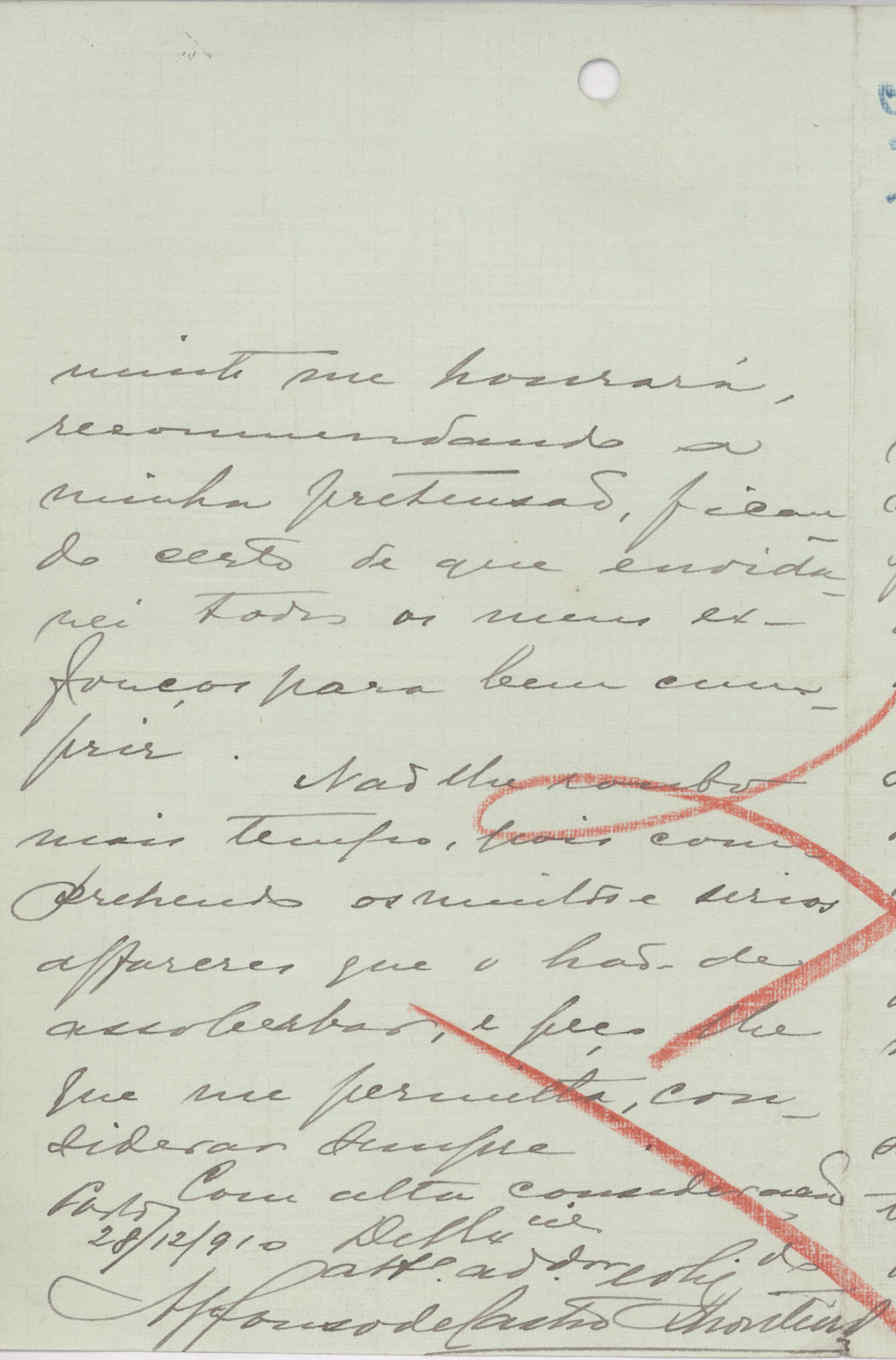 mente me honrará,
recommendando a
minha pretensaõ, fican
do certo de que envida-
rei todos os meus ex-
forços para bem cum-
prir.
Naõ lhe roubo
mais tempo, pois com-
prehendo os muitos e serios
affareres que o haõ-de
assoberbar, e peço lhe
que me permitta, con-
siderar sempre
Com alta consideração
Porto
28/12/910 De V. Ex.cia
att.º ad.dor
Affonso de Castro Monteiro